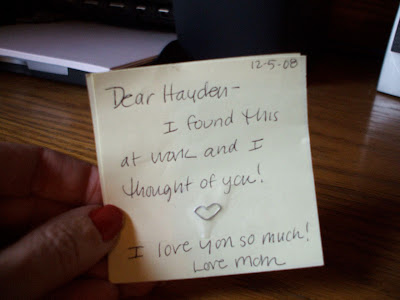 12-5-08
Dear Hayden-
I found this
at work and I
thought of you!
I love you so much!
Love mom